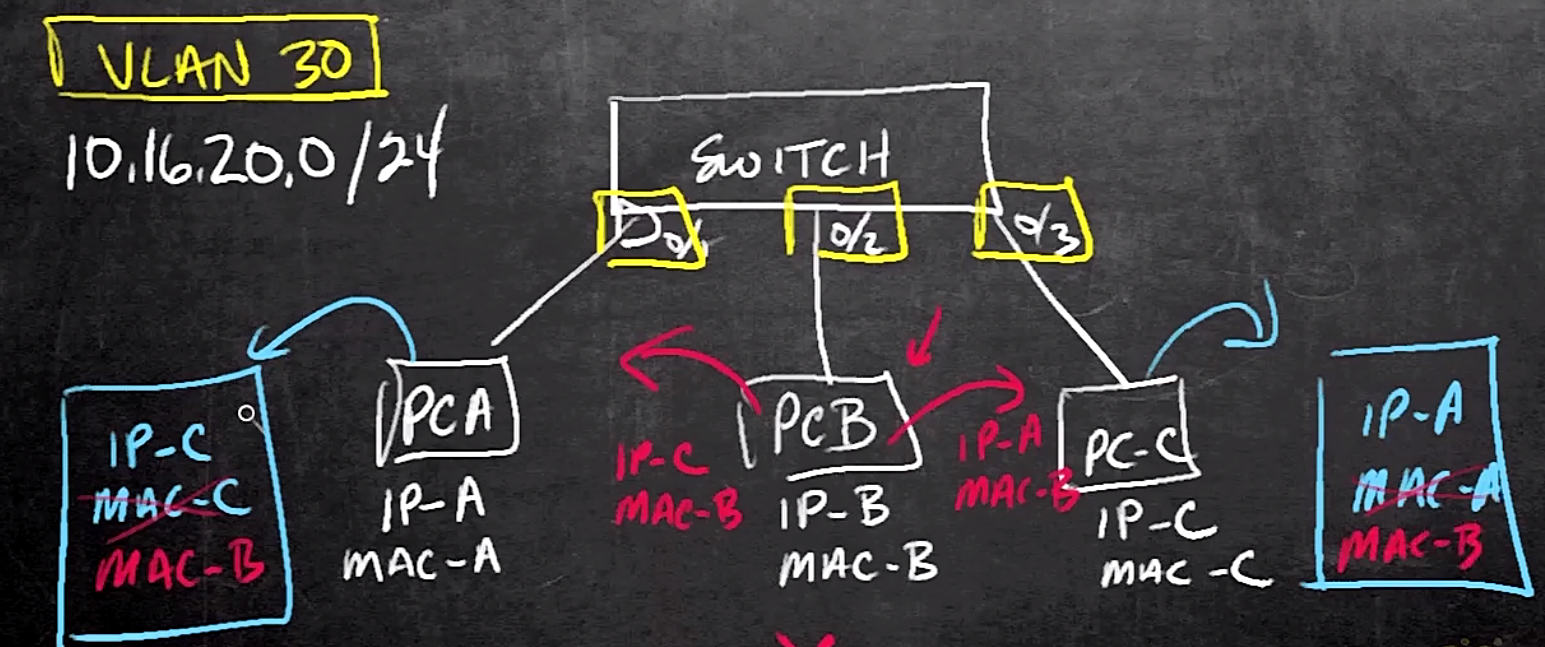 VLAN 30
10.16.20.0/24
SWITCH
0/1
0/2
0/3
IP-C
MAC-C
MAC-B
PCA
IP-A
MAC-A
IP-C
MAC-B
PCB
IP-B
MAC-B
IP-A
MAC-B
PC-C
IP-C
MAC-C
IP-A
MAC-A
MAC-B